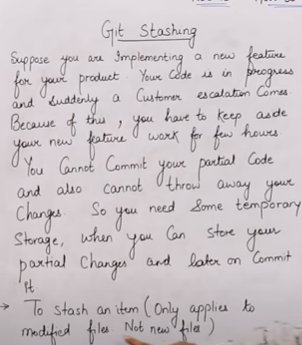 Git Stashing
Suppose you are Implementing a new feature
for your product. Your Code is in progress
and suddenly a Customer escalation Comes
Because of this, you have to keep aside
your new feature work for few hours.
You Cannot Commit your partial Code
and also cannot throw away your
Changes. So you need Some temporary
Storage, when you Can Store your
partial Changes and later on Commit
it
→ To stash an item (Only applies to
modified files. Not new files)